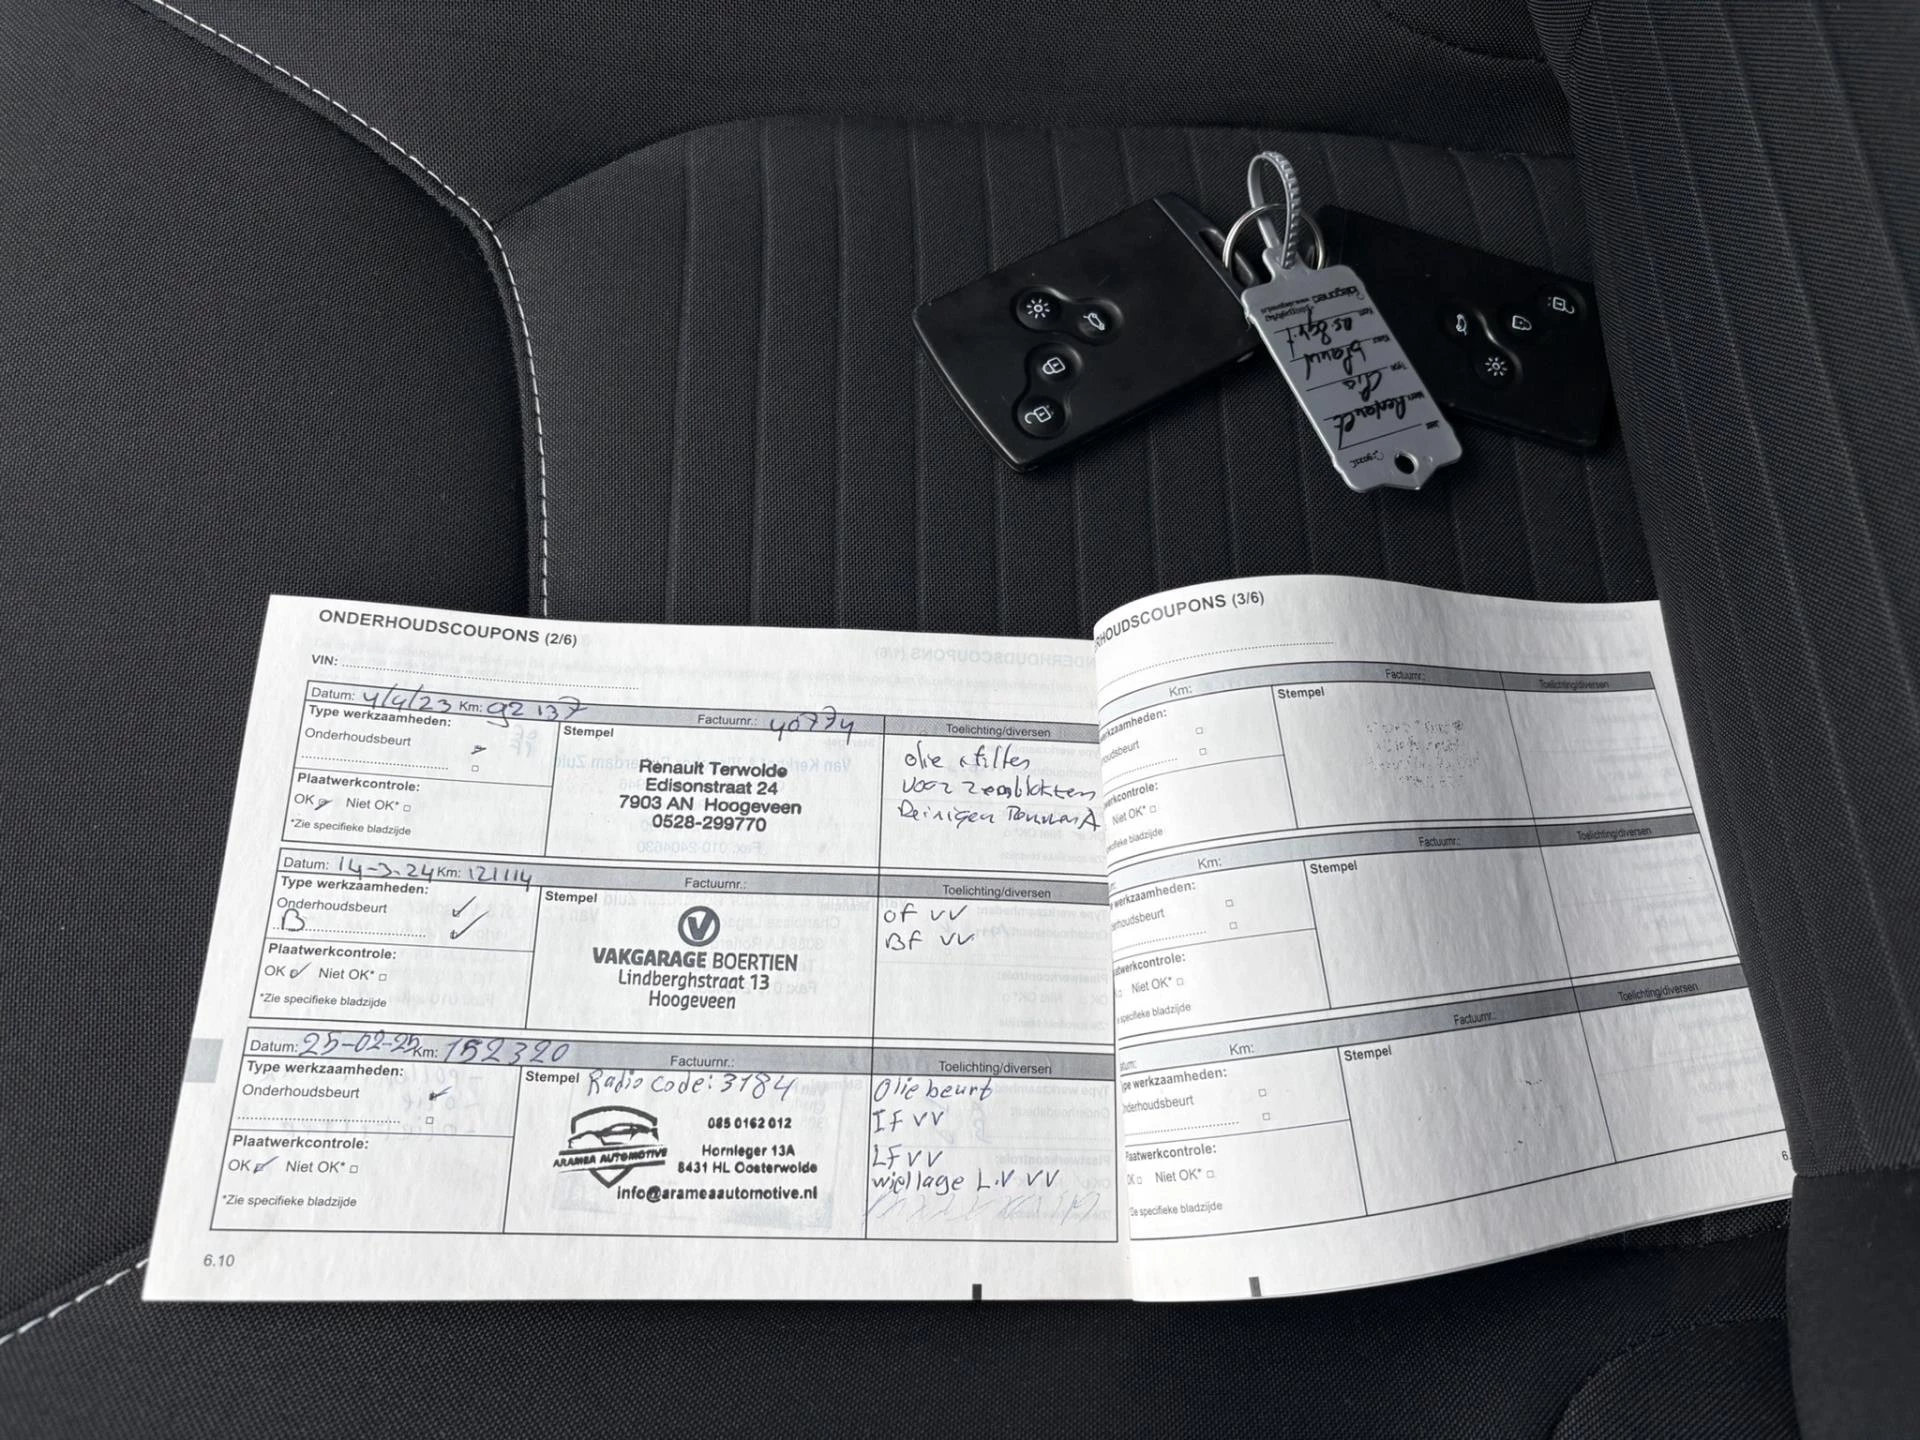 ONDERHOUDSCOUPONS (2/6)
VIN:
Datum: 4/4/23 Km: 92137 Factuurnr.: 40774 Toelichting/diversen
Type werkzaamheden:
Onderhoudsbeurt
Plaatwerkcontrole:
OK Niet OK*
*Zie specifieke bladzijde
Stempel
Renault Terwolde
Edisonstraat 24
7903 AN Hoogeveen
0528-299770
olie + filter
voor remblokken
Reinigen
Datum: 14-3-24 Km: 121114 Factuurnr.: Toelichting/diversen
Type werkzaamheden:
Onderhoudsbeurt
B
Plaatwerkcontrole:
OK Niet OK*
*Zie specifieke bladzijde
Stempel
VAKGARAGE BOERTIEN
Lindberghstraat 13
Hoogeveen
OF VV
BF VV
Datum: 25-02-25 Km: 152320 Factuurnr.: Toelichting/diversen
Type werkzaamheden:
Onderhoudsbeurt
Plaatwerkcontrole:
OK Niet OK*
*Zie specifieke bladzijde
Stempel Radio code: 3184
ARAMEA AUTOMOTIVE
085 0162 012
Hornleger 13A
8431 HL Oosterwolde
info@arameaautomotive.nl
Olie beurt
IF VV
LF VV
wiellage L.V VV
6.10
RHOUDSCOUPONS (3/6)
Km: Factuurnr.: Toelichting/diversen
rkzaamheden:
houdsbeurt
rkcontrole:
Niet OK*
specifieke bladzijde
Stempel
Km: Factuurnr.: Toelichting/diversen
werkzaamheden:
derhoudsbeurt
atwerkcontrole:
Niet OK*
e specifieke bladzijde
Stempel
atum: Km: Factuurnr.: Toelichting/diversen
ype werkzaamheden:
nderhoudsbeurt
Plaatwerkcontrole:
OK Niet OK*
Zie specifieke bladzijde
Stempel
6.
Merk Renault
Type Clio
Kleur blauw
Kent.